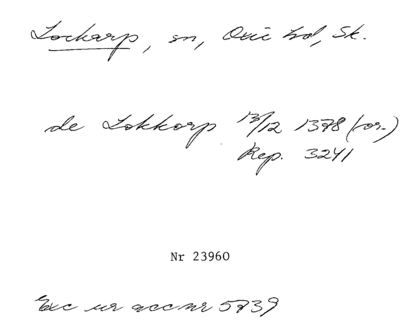 Lockarp, sn, Oxie hd, Sk.
de Lokkorp 13/12 1378 (or.)
Rep. 3241
Nr 23960
Exc ur acc nr 5739